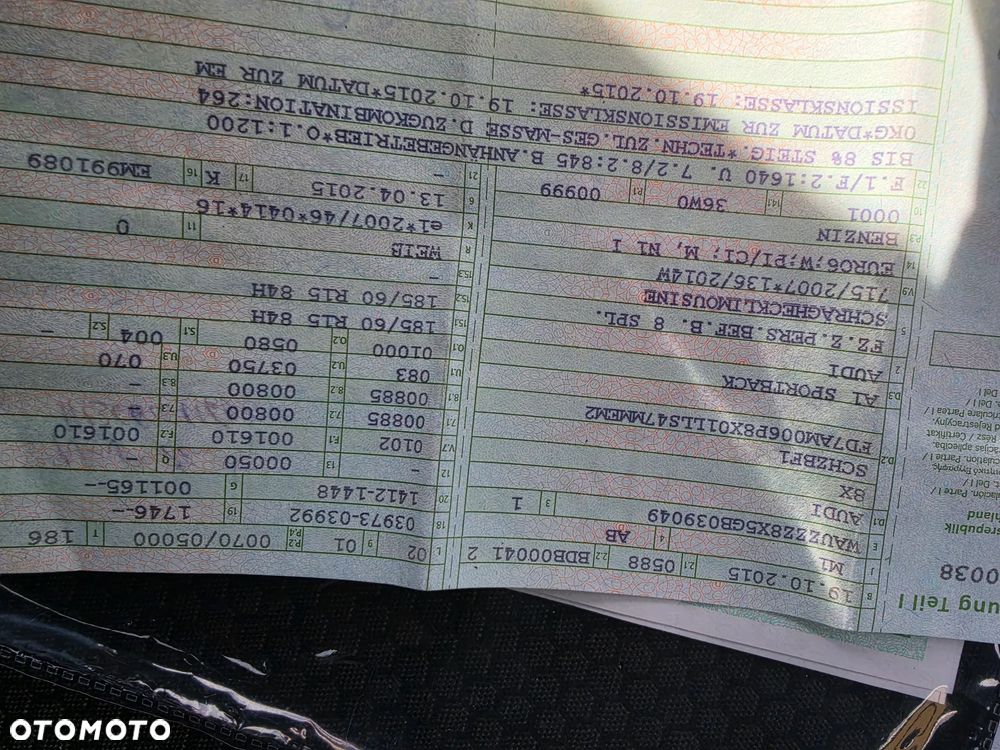 ung Teil I
0038
republik
hland
B 19.10.2015 2.1 0588 2.2 BDB00041 2
J M1 4 AB
E WAUZZZ8X5GB039049 3 1
D.1 AUDI
8X
D.2 SCHZBF1
FD7AM006P8X01LLS47MMEM2
D.3 A1 SPORTBACK
2 AUDI
5 FZ.Z.PERS.BEF.B. 8 SPL.
SCHRAGHECKLIMOUSINE
V.9 715/2007*136/2014W
14 EURO6;W;PI/CI; M, N1 I
P.3 BENZIN
10 0001 14.1 36W0 P.1 00999
22 F.1/F.2:1640 U. 7.2/8.2:845 B.ANHÄNGEBETRIEB*O.1:1200
BIS 8% STEIG.*TECHN.ZUL.GES-MASSE D.ZUGKOMBINATION:264
0KG*DATUM ZUR EMISSIONSKLASSE: 19.10.2015*DATUM ZUR EM
ISSIONSKLASSE: 19.10.2015*
L 02 9 01 P.2 P.4 0070/05000 T 186
18 03973-03992 19 1746--
20 1412-1448 G 001165--
12 - 13 00050 Q -
V.7 0102 F.1 001610 F.2 001610
7.1 00885 7.2 00800 7.3 -
8.1 00885 8.2 00800 8.3 -
U.1 083 U.2 03750 U.3 070
O.1 01000 O.2 0580 S.1 004 S.2 -
15.1 185/60 R15 84H
15.2 185/60 R15 84H
15.3 -
R WEIß 11 0
K e1*2007/46*0414*16
6 13.04.2015 17 K 16 EM991089
21 -
OTOMOTO